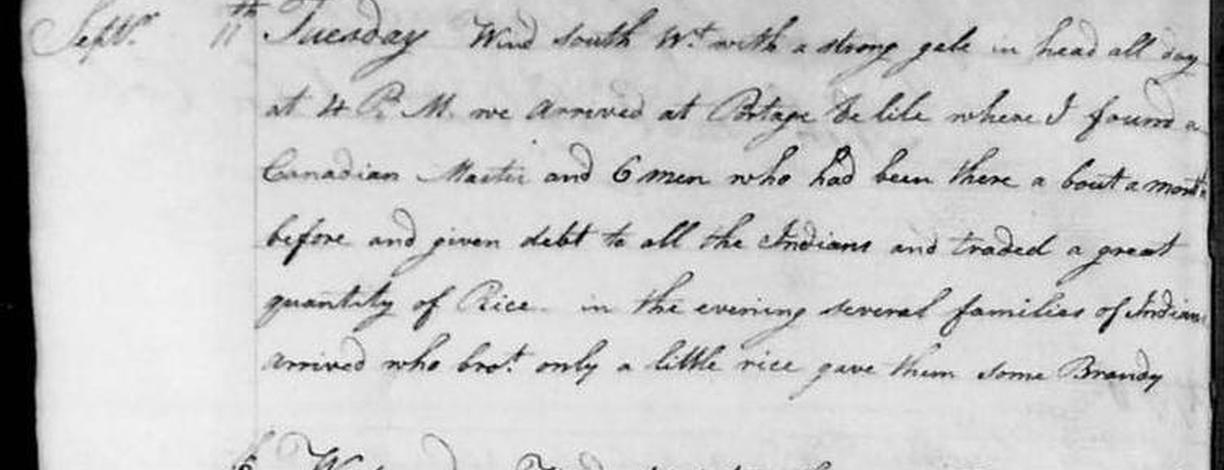 Septr. 11th Tuesday Wind south Wt. with a strong gale in head all day
at 4 P. M. we Arrived at Portage De lile where I found a
Canadian Master and 6 men who had been there a bout a month
before and given debt to all the Indians and traded a great
quantity of Rice in the evening several families of Indians
arrived who brot. only a little rice gave them some Brandy